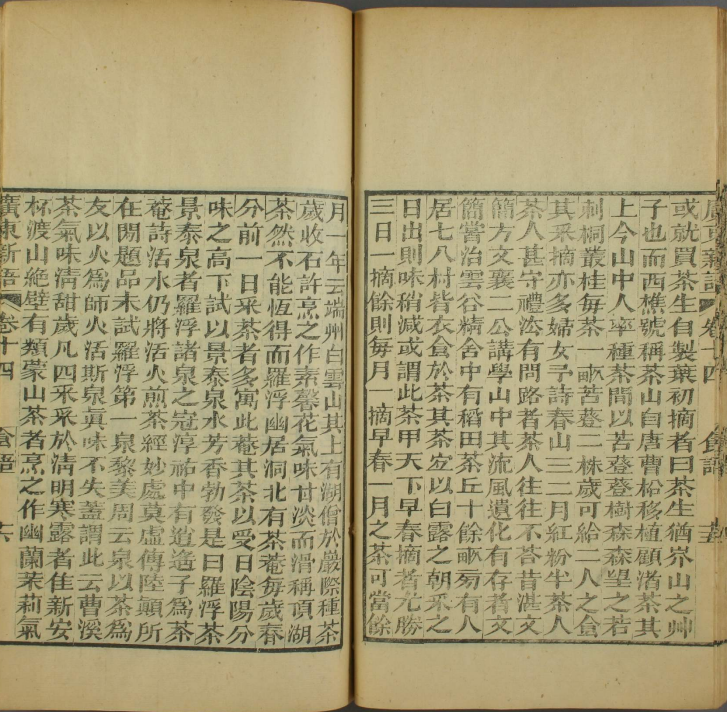 或就買茶生自製葉初摘者曰茶生猶岕山之艸
子也而西樵號稱茶山自唐曹松移植顧渚茶其
上今山中人率種茶間以苦䔲䔲樹森森望之若
刺桐叢桂每茶一畝苦䔲二株歲可給二人之食
其采摘亦多婦女予詩春山三二月紅粉半茶人
茶人甚守禮法有問路者茶人往往不荅昔湛文
簡方文襄二公講學山中其流風遺化有存者文
簡嘗治雲谷精舍中有稻田茶丘十餘畝旁有人
居七八村皆衣食於茶其茶宜以白露之朝采之
日出則味稍減或謂此茶甲天下早春摘者尤勝
三日一摘餘則每月 摘早春一月之茶可當餘
廣東新語 卷十四 食語
月一年云端州白雲山其上有湖僧於巖際種茶
歲收石許烹之作素馨花氣味甘淡而滑稱頂湖
茶然不能恆得而羅浮幽居洞北有茶菴每歲春
分前一日采茶者多寓此菴其茶以受日陰陽分
味之高下試以景泰泉水芳香勃發是曰羅浮茶
景泰泉者羅浮諸泉之冠淳祐中有逍遙子爲茶
菴詩活水仍將活火煎茶經妙處莫虛傳陸顛所
在閒題品未試羅浮第一泉黎美周云泉以茶爲
友以火爲師火活斯泉真味不失蓋謂此云曹溪
茶氣味清甜歲凡四采采於清明寒露者佳新安
杯渡山絶壁有類蒙山茶者烹之作幽蘭茉莉氣
廣東新語 卷十四 食語 六